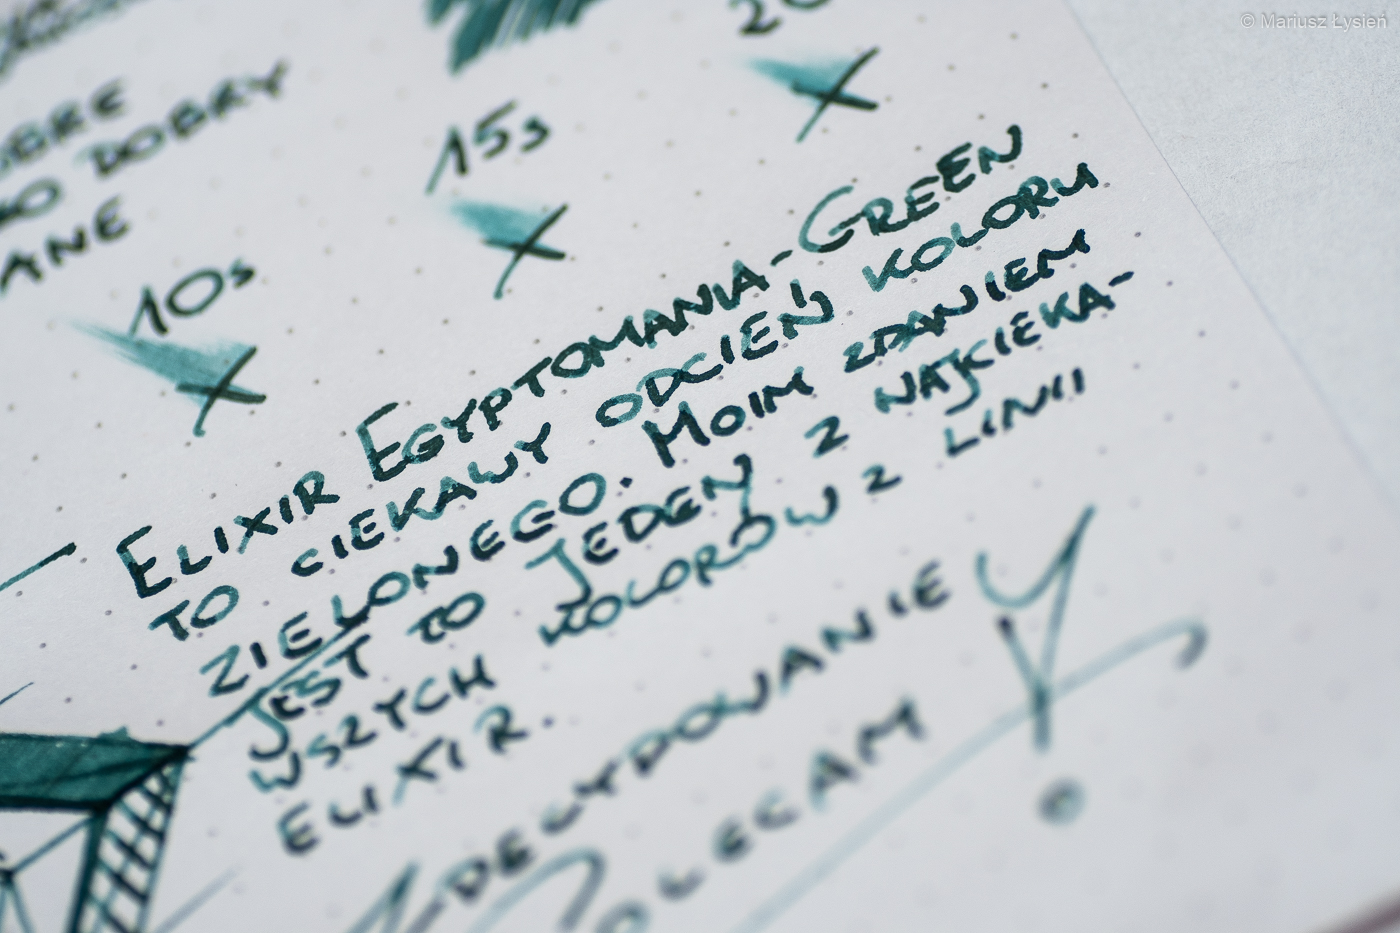 © Mariusz Łysień
DOBRY
10s
15s
ELIXIR EGYPTOMANIA-GREEN
TO CIEKAWY ODCIEŃ KOLORU
ZIELONEGO. MOIM ZDANIEM
JEST TO JEDEN Z NAJCIEKA-
WSZYCH KOLORÓW Z LINII
ELIXIR.
ZDECYDOWANIE
POLECAM!